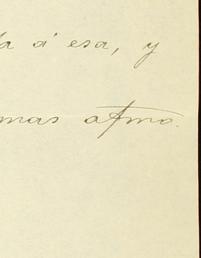 da á esa, y
mas atmo.